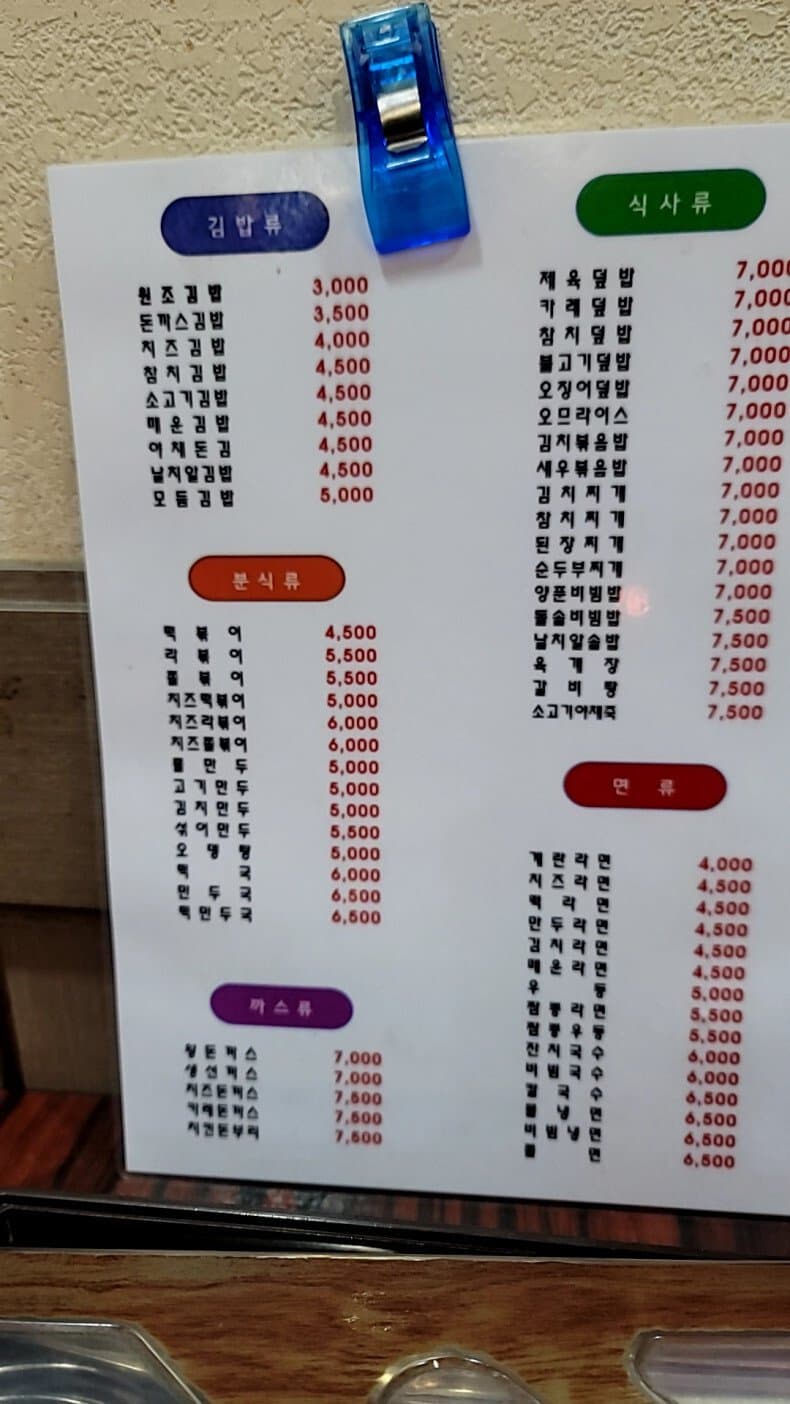 김밥류
원조김밥 3,000
돈까스김밥 3,500
치즈김밥 4,000
참치김밥 4,500
소고기김밥 4,500
매운김밥 4,500
야채돈김 4,500
날치알김밥 4,500
모듬김밥 5,000
분식류
떡볶이 4,500
라볶이 5,500
쫄볶이 5,500
치즈떡볶이 5,000
치즈라볶이 6,000
치즈쫄볶이 6,000
물만두 5,000
고기만두 5,000
김치만두 5,000
섞어만두 5,500
오뎅탕 5,000
떡국 6,000
만두국 6,500
떡만두국 6,500
까스류
왕돈까스 7,000
생선까스 7,000
치즈돈까스 7,500
카레돈까스 7,500
치킨돈부리 7,500
식사류
제육덮밥 7,000
카레덮밥 7,000
참치덮밥 7,000
불고기덮밥 7,000
오징어덮밥 7,000
오므라이스 7,000
김치볶음밥 7,000
새우볶음밥 7,000
김치찌개 7,000
참치찌개 7,000
된장찌개 7,000
순두부찌개 7,000
양푼비빔밥 7,000
돌솥비빔밥 7,500
날치알솥밥 7,500
육개장 7,500
갈비탕 7,500
소고기야채죽 7,500
면류
계란라면 4,000
치즈라면 4,500
떡라면 4,500
만두라면 4,500
김치라면 4,500
매운라면 4,500
우동 5,000
짬뽕라면 5,500
짬뽕우동 5,500
잔치국수 6,000
비빔국수 6,000
칼국수 6,500
물냉면 6,500
비빔냉면 6,500
쫄면 6,500